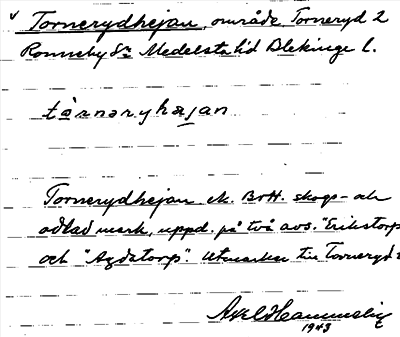 v Tornerydhejan, område, Torneryd 2
Ronneby Sn Medelsta hd Blekinge l.
tòrnəryhæjan
Tornerydhejan ek. Bott. skogs- och
odlad mark, uppd. på två avs. "Erikstorp
och "Agdatorp". Utmarken till Torneryd 2
Axel Hammelig
1943